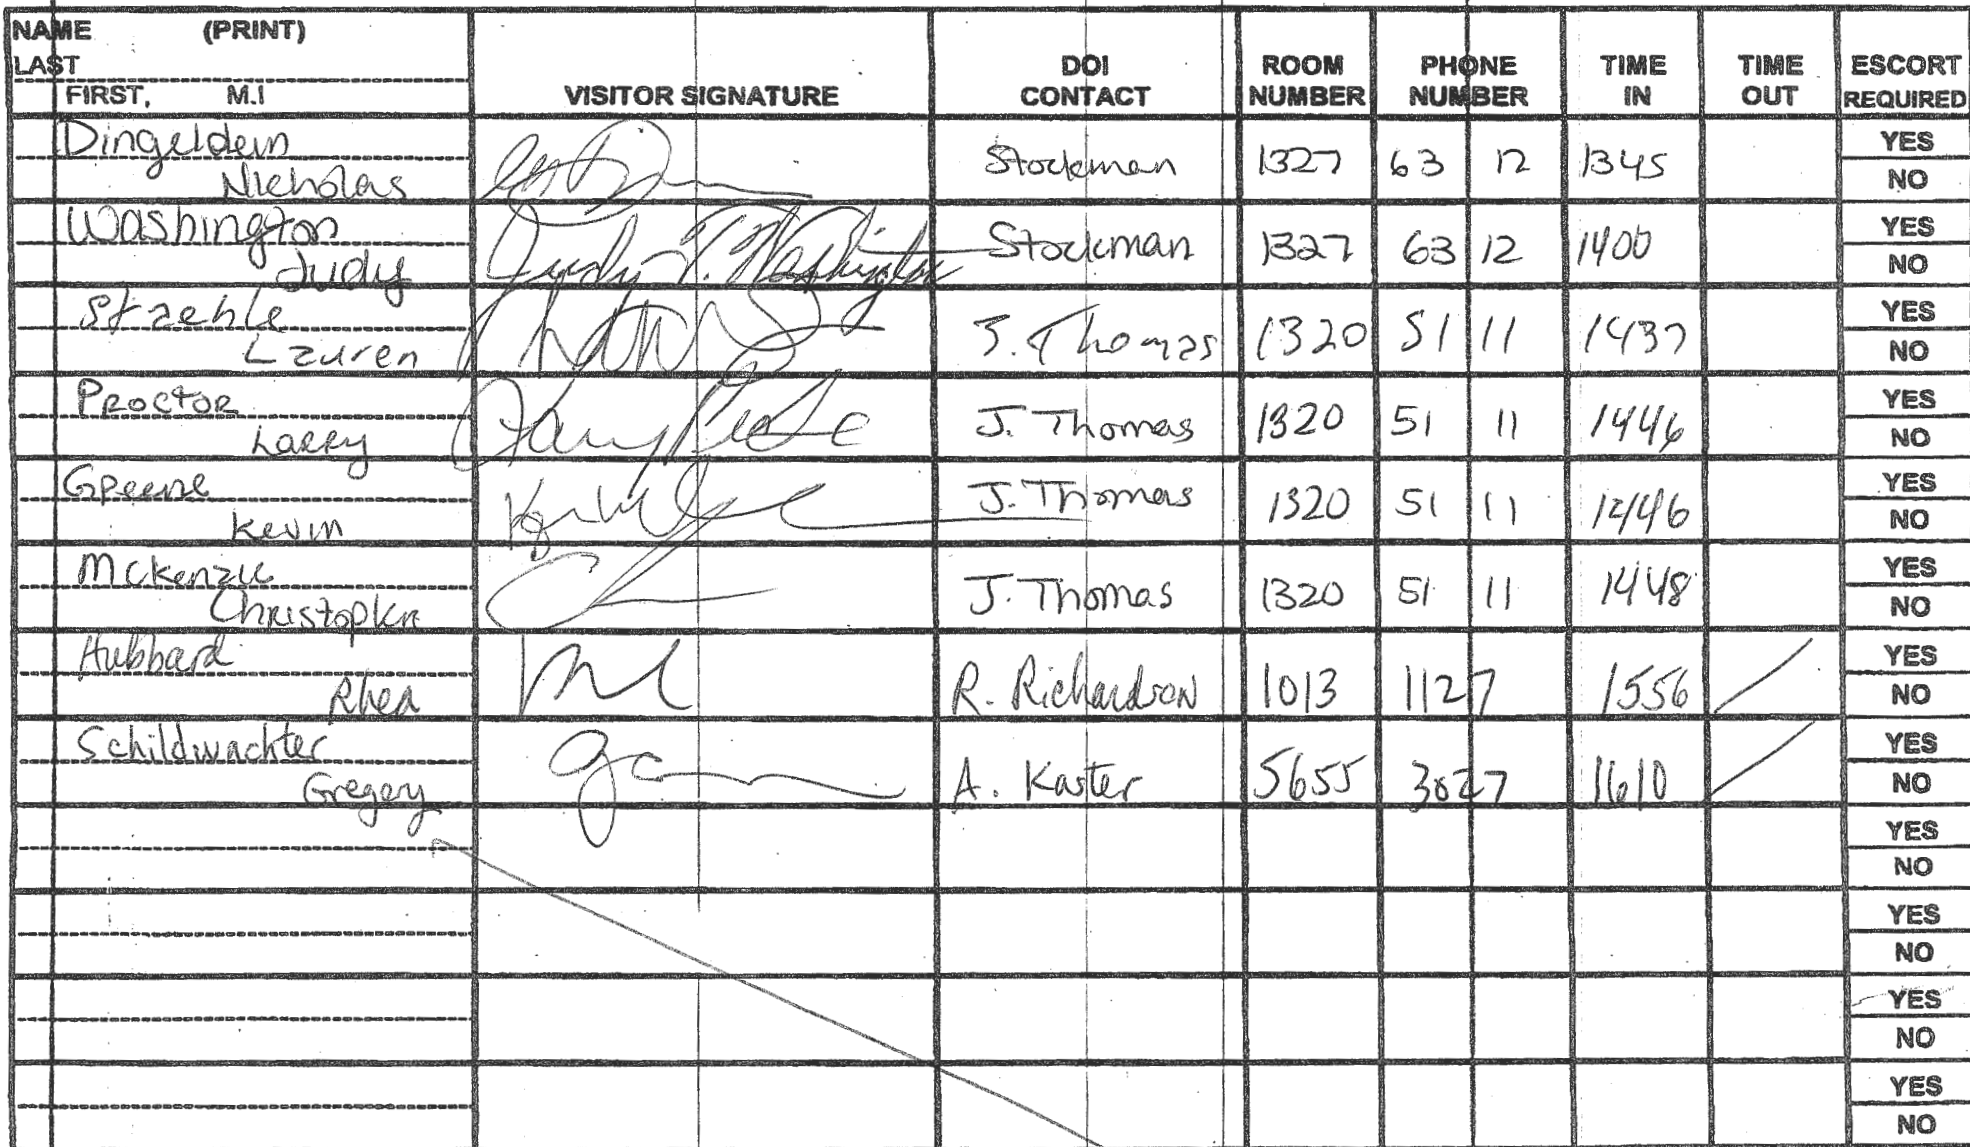 NAME (PRINT)
LAST
FIRST, M.I
VISITOR SIGNATURE
DOI CONTACT
ROOM NUMBER
PHONE NUMBER
TIME IN
TIME OUT
ESCORT REQUIRED
Dingeldein
Nicholas
Stockman 1327 63 12 1345
YES
NO
Washington
Judy
Judy T. Washington
Stockman 1327 63 12 1400
YES
NO
Staehle
Lauren
J. Thomas 1320 51 11 1437
YES
NO
Proctor
Larry
J. Thomas 1320 51 11 1446
YES
NO
Greene
Kevin
J. Thomas 1320 51 11 1446
YES
NO
McKenzie
Christopher
J. Thomas 1320 51 11 1448
YES
NO
Hubbard
Rhea
R. Richardson 1013 1127 1556
YES
NO
Schildwachter
Gregory
A. Karter 5655 3027 1610
YES
NO
YES
NO
YES
NO
YES
NO
YES
NO